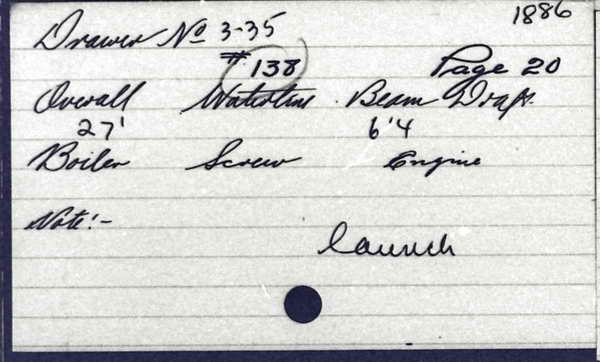 1886
Drawer No 3-35
# 138 Page 20
Overall Waterline Beam Draft
27' 6'4
Boiler Screw Engine
Note:-
launch